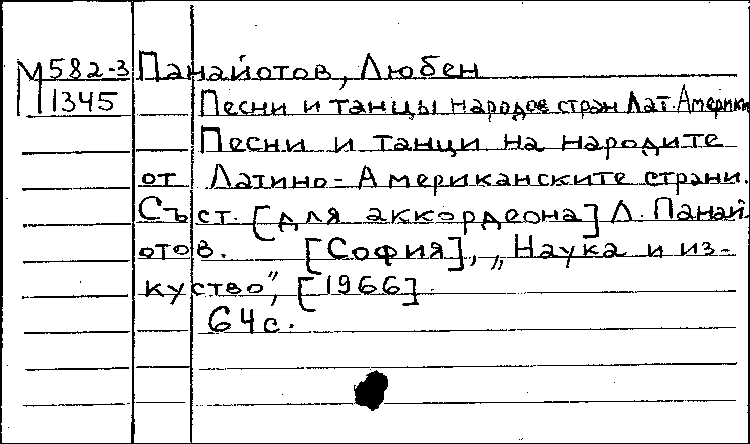 М 582-3 Панайотов, Любен
1345 Песни и танцы народов стран Лат. Америки
Песни и танци на народите
от Латино-Американските страни.
Съст. [для аккордеона] Л. Панай-
отов. [София], „Наука и из-
куство", [1966].
64 с.